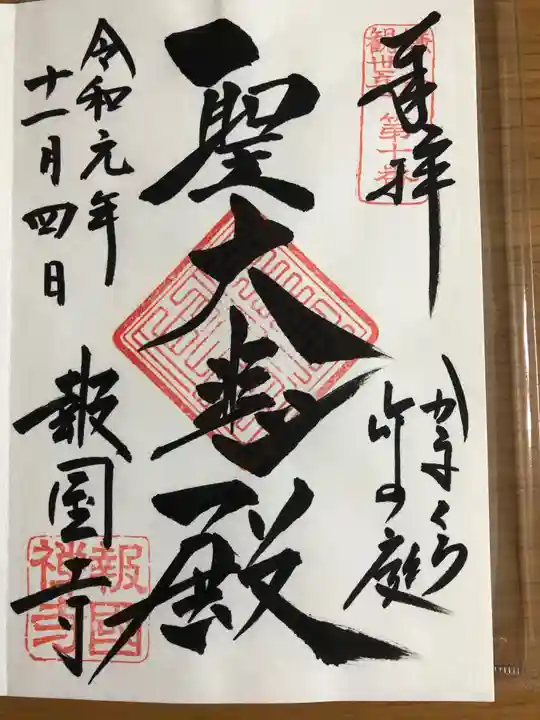 奉拝
観世音
第十番
かまくら
竹の庭
聖大悲殿
令和元年
十一月四日
報国寺
報國
禅寺